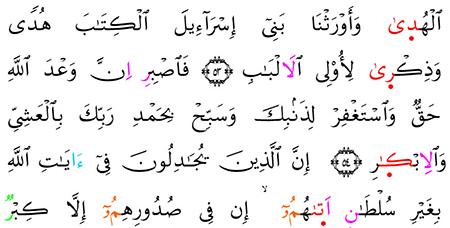 ٱلْهُدۭىٰ وَأَوْرَثْنَا بَنِىٓ إِسْرَآءِيلَ ٱلْكِتَٰبَ هُدًى
وَذِكْرۭىٰ لِأُو۟لِى ٱلَالْبَٰبِ ۝٥٣ فَٱصْبِرِ انَّ وَعْدَ ٱللَّهِ
حَقٌّ وَٱسْتَغْفِرْ لِذَنۢبِكَ وَسَبِّحْ بِحَمْدِ رَبِّكَ بِٱلْعَشِىِّ
وَٱلِابْكٰ۪رِ ۝٥٤ إِنَّ ٱلَّذِينَ يُجَٰدِلُونَ فِىٓ ءَايَٰتِ ٱللَّهِ
بِغَيْرِ سُلْطَٰنٍ اَتىٰ۪هُمُۥٓ ۙ إِن فِى صُدُورِهِمُۥٓ إِلَّا كِبْرٌ